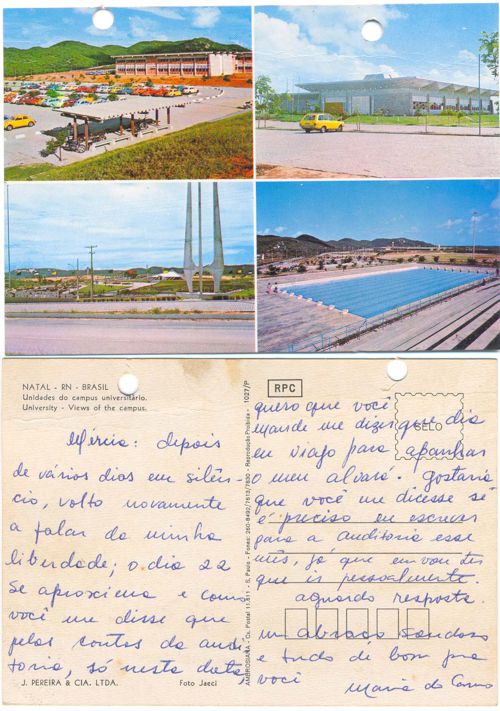 NATAL - RN - BRASIL
Unidades do campus universitário.
University - Views of the campus.
Mércia: depois
de vários dias em silên-
cio, volto novamente
a falar da minha
liberdade; o dia 22
se aproxima e como
você me disse que
pelas contas da audi-
toria, só nesta data,
J. PEREIRA & CIA. LTDA.
Foto Jaeci
AMBROSIANA - Cx. Postal 11.811 - S. Paulo - Fones: 260-8492/7613/7630 - Reprodução Proibida - 1027/P
RPC
SELO
quero que você
mande me dizer que dia
eu viajo para apanhar
o meu alvará. Gostaria
que você me dicesse se
é preciso eu escrever
para a auditoria esse
mês, já que eu vou ter
que ir pessoalmente.
aguardo resposta.
um abraço saudoso
e tudo de bom pra
você
Maria do Carmo